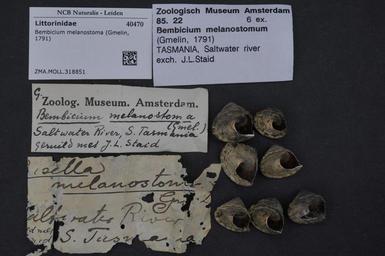 NCB Naturalis - Leiden
Littorinidae 40470
Bembicium melanostoma (Gmelin,
1791)
ZMA.MOLL.318851
Zoologisch Museum Amsterdam
85. 22 6 ex.
Bembicium melanostomum
(Gmelin, 1791)
TASMANIA, Saltwater river
exch. J.L.Staid
G.
Zoolog. Museum. Amsterdam.
Bembicium melanostoma
(Gmel.)
Saltwater River, S. Tasmania
geruild met J.L. Staid
melanostoma
River
S. Tasmania